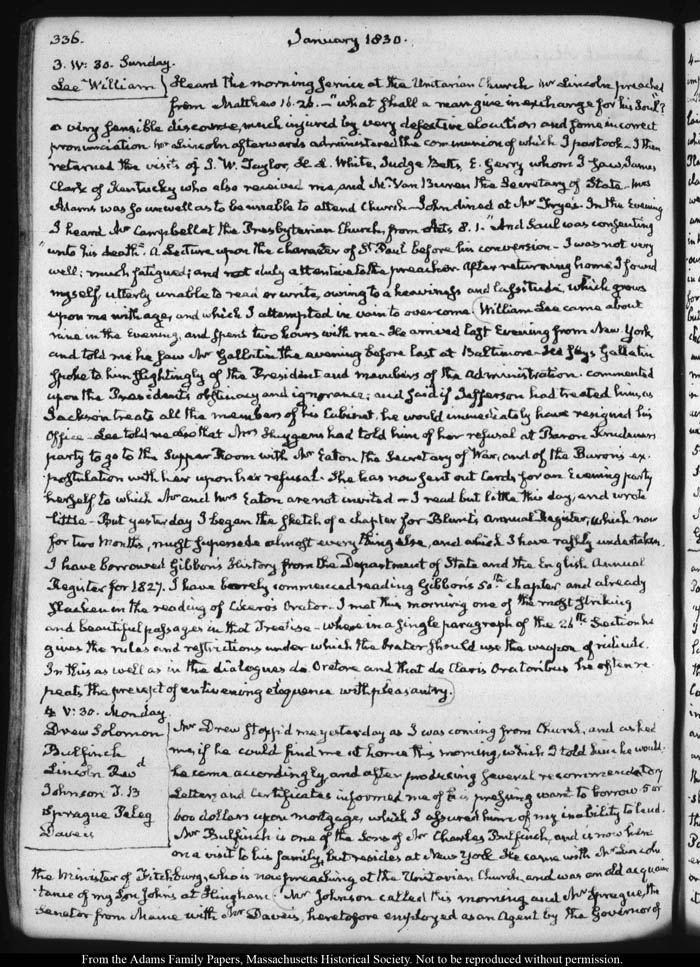 336.
January 1830.
3. IV: 30. Sunday.
Lee William
Heard the morning service at the Unitarian Church Mr Lincoln preached
from Matthew 16. 26. "what shall a man give in exchange for his Soul"?
a very sensible discourse, much injured by very defective elocution and some incorrect
pronunciation Mr Lincoln afterwards administered the communion of which I partook. I then
returned the visits of J. W. Taylor, H. L. White, Judge Betts, E. Gerry whom I saw, James
Clark of Kentucky who also received me, and Mr Van Buren the Secretary of State. Mrs
Adams was so unwell as to be unable to attend Church. John dined at Mr Frye's. In the evening
I heard Mr Campbell at the Presbyterian Church, from Acts. 8. 1. "And Saul was consenting
"unto his death". A Lecture upon the character of St Paul before his conversion. I was not very
well; much fatigued; and not duly attentive to the preacher. After returning home I found
myself utterly unable to read or write, owing to a heaviness and lassitude, which grows
upon me with age, and which I attempted in vain to overcome. William Lee came about
nine in the Evening, and spent two hours with me. He arrived last Evening from New York,
and told me he saw Mr Gallatin the evening before last at Baltimore. He says Gallatin
spoke to him slightingly of the President and members of the Administration. commented
upon the President's obstinacy and ignorance; and said if Jefferson had treated him, as
Jackson treats all the members of his Cabinet, he would immediately have resigned his
Office. Lee told me also that Mrs Huygens had told him of her refusal at Baron Krudener's
party to go to the Supper Room with Mr Eaton the Secretary of War, and of the Baron's ex-
postulation with her upon her refusal. She has now sent out Cards for an Evening party
herself to which Mr and Mrs Eaton are not invited. I read but little this day, and wrote
little. But yesterday I began the sketch of a chapter for Blunt's Annual Register, which now
for two Months, must supersede almost every thing else, and which I have rashly undertaken.
I have borrowed Gibbon's History from the Department of State and the English Annual
Register for 1827. I have barely commenced reading Gibbon's 50th chapter and already
slacken in the reading of Cicero's Orator. I met this morning one of the most striking
and beautiful passages in that Treatise. where in a single paragraph of the 26th Section he
gives the rules and restrictions under which the Orator should use the weapon of ridicule.
In this as well as in the dialogues de Oratore and that de Claris Oratoribus he often re-
peats the precept of enlivening eloquence with pleasantry.
4. V: 30. Monday
Drew Solomon
Bulfinch
Lincoln Revd
Johnson J. B
Sprague Peleg
Daveis
Mr Drew stopp'd me yesterday as I was coming from Church, and asked
me, if he could find me at home this morning, which I told him he would.
he came accordingly and after producing several recommendatory
Letters and Certificates informed me of his pressing want to borrow 5 or
600 dollars upon mortgage, which I assured him of my inability to lend.
Mr Bulfinch is one of the Sons of Mr Charles Bulfinch, and is now here
on a visit to his family, but resides at New York. He came with Mr Lincoln
the Minister of Fitchburg, who is now preaching at the Unitarian Church, and was an old acquain-
tance of my Son John's at Hingham. Mr Johnson called this morning and Mr Sprague, the
Senator from Maine with Mr Daveis, heretofore employed as an Agent by the Governor of
From the Adams Family Papers, Massachusetts Historical Society. Not to be reproduced without permission.